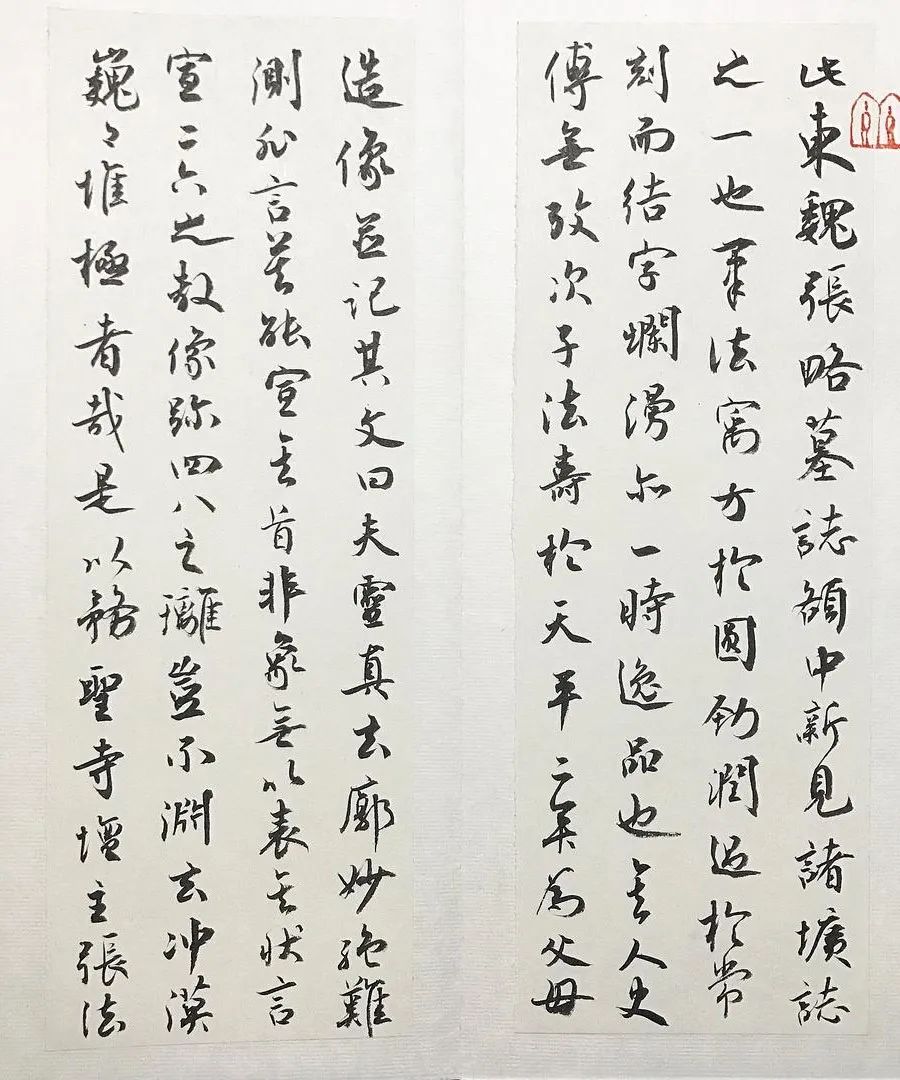 此東魏張略墓誌額中新見諸壙誌
之一也筆法寓方於圓勁潤過於常
刻而結字爛漫亦一時逸品也其人史
傳無攷次子法壽於天平二年為父母
造像並記其文曰夫靈真玄廓妙絕難
測非言莫能宣其旨非象無以表其狀言
宣二六之教像跡四八之璃豈不淵玄沖漠
巍々堆極者哉是以務聖寺壇主張法